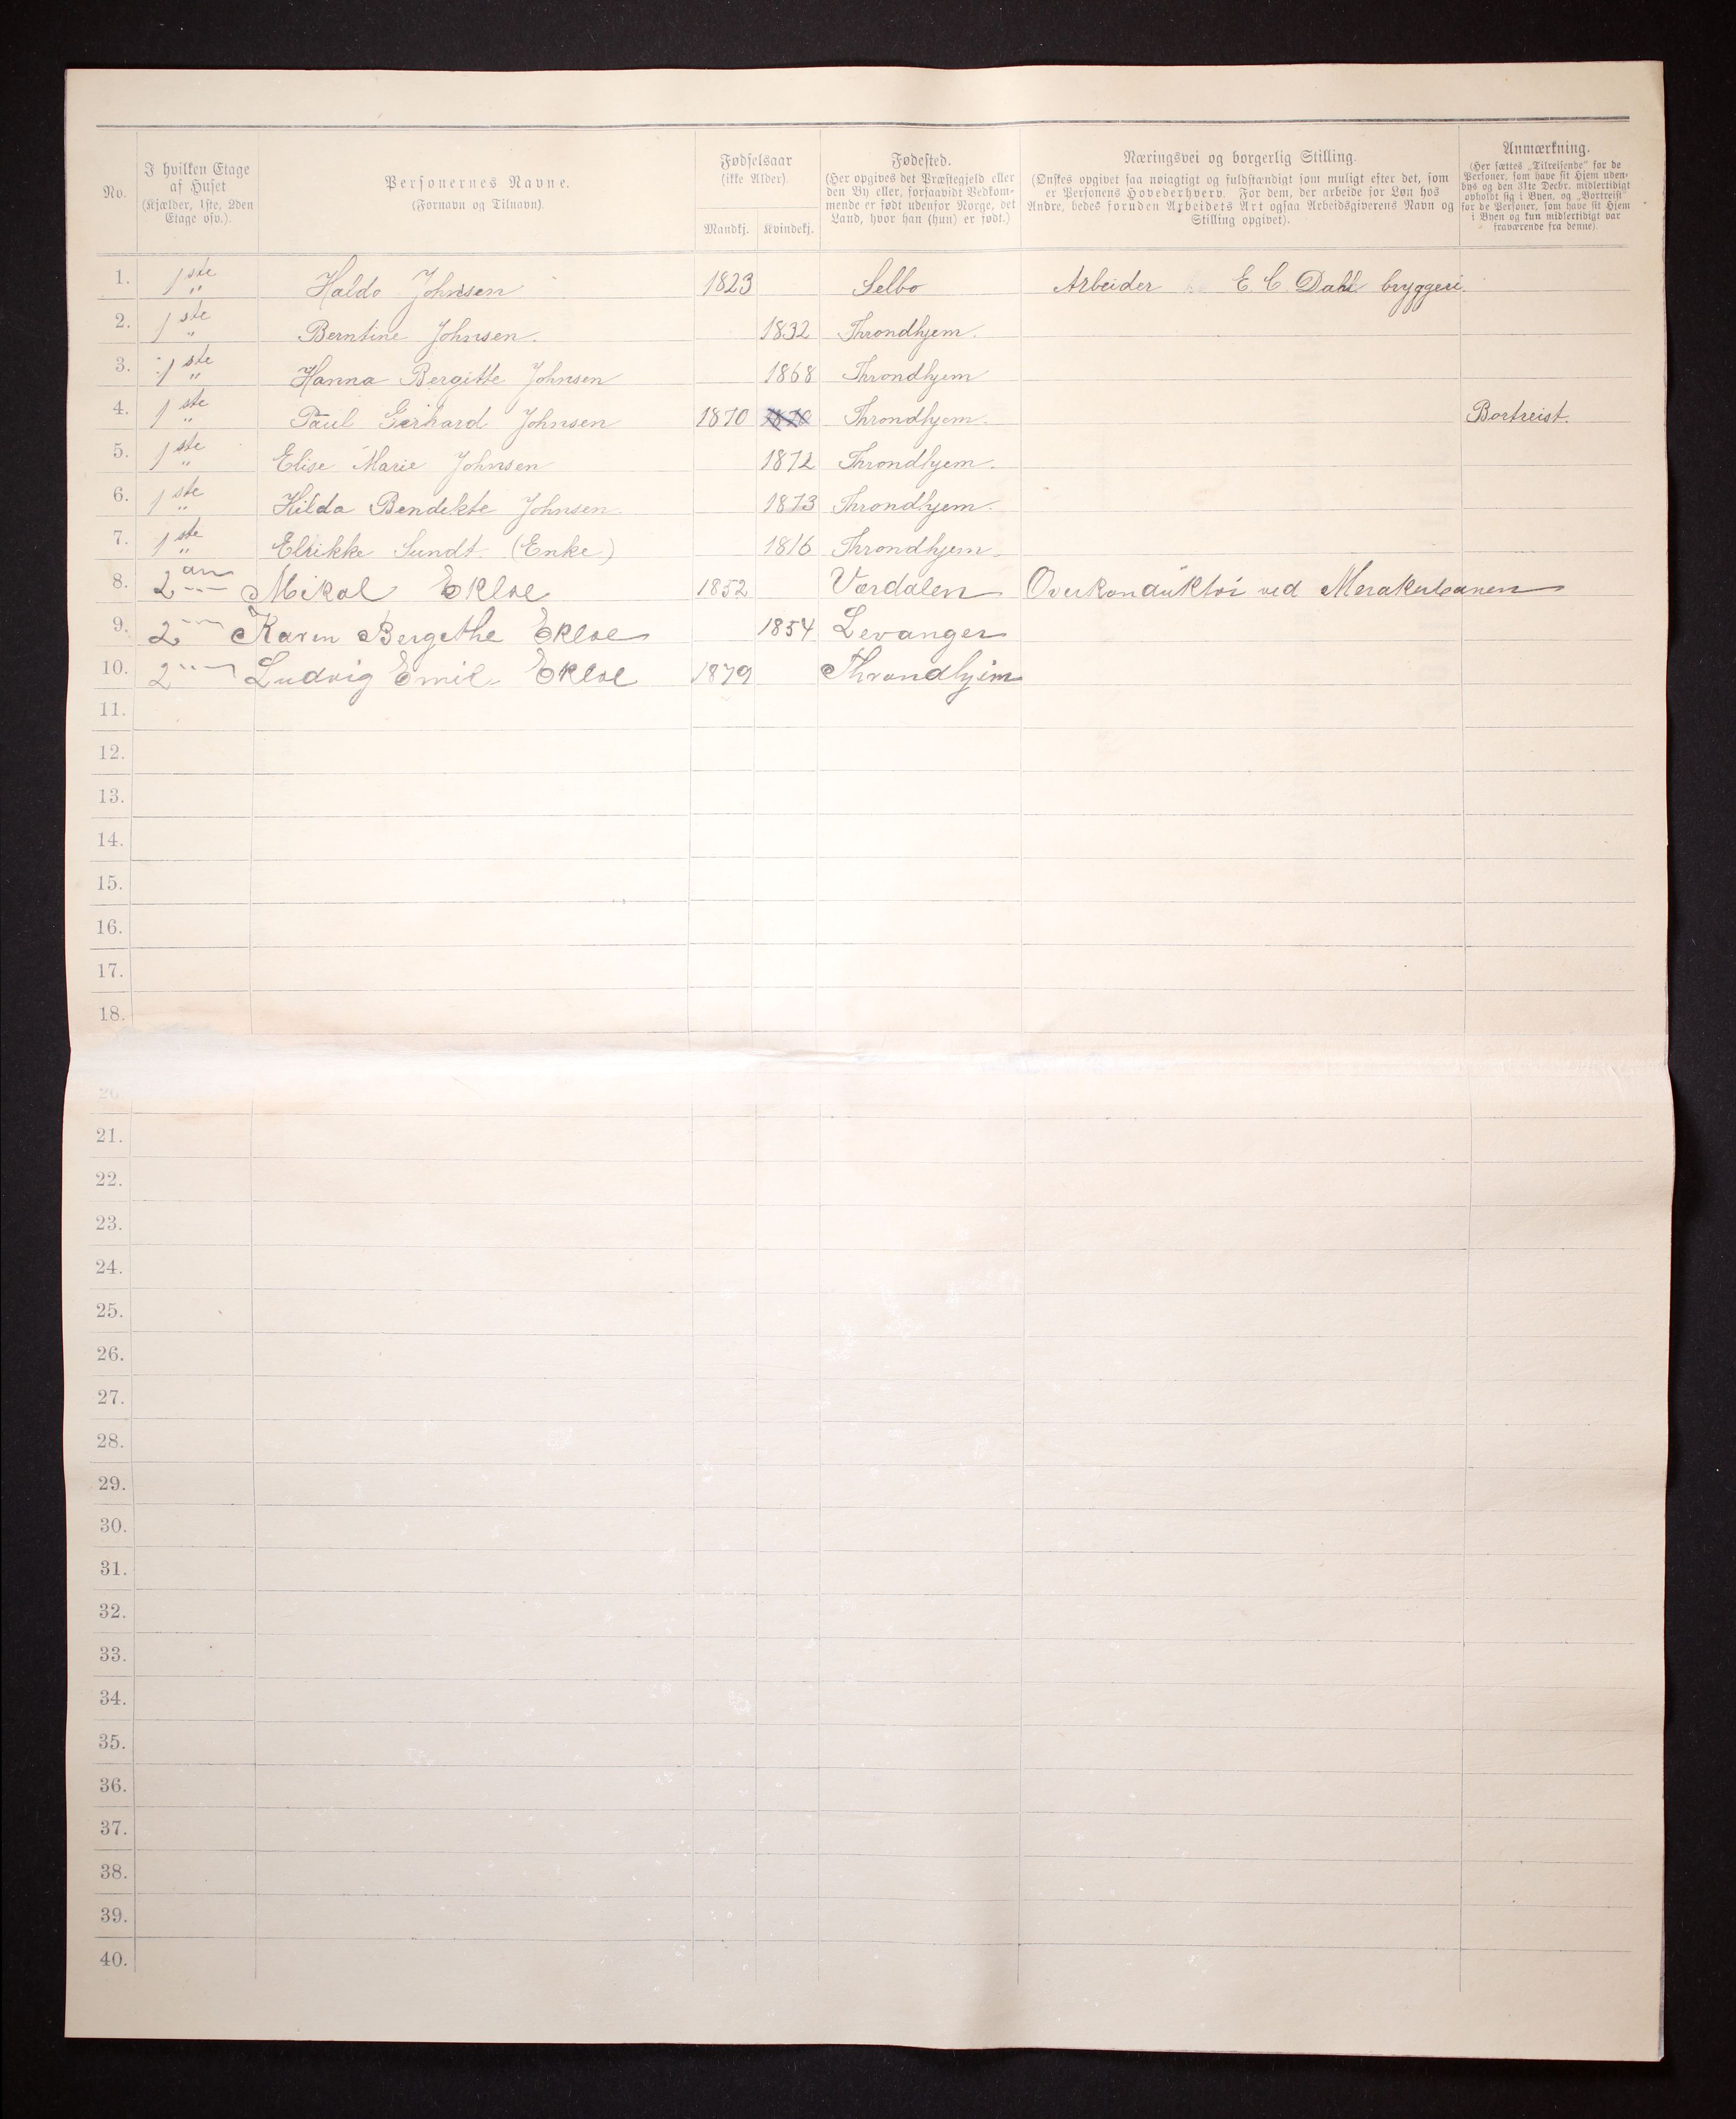 No.
I hvilken Etage af Huset (Kjælder, 1ste, 2den Etage osv.).
Personernes Navne. (Fornavn og Tilnavn).
Fødselsaar (ikke Alder).
Mandkj. Kvindekj.
Fødested. (Her opgives det Præstegjeld eller den By eller, forsaavidt Vedkommende er født udenfor Norge, det Land, hvor han (hun) er født.)
Næringsvei og borgerlig Stilling. (Ønskes opgivet saa nøiagtigt og fuldstændigt som muligt efter det, som er Personens Hovederhverv. For dem, der arbeide for Løn hos Andre, bedes foruden Arbeidets Art ogsaa Arbeidsgiverens Navn og Stilling opgivet).
Anmærkning. (Her sættes „Tilreisende“ for de Personer, som have sit Hjem udenbys og den 31te Decbr. midlertidigt opholdt sig i Byen, og „Bortreist“ for de Personer, som have sit Hjem i Byen og kun midlertidigt var fraværende fra denne).
1. 1ste " Haldo Johnsen 1823 Selbo Arbeider E. C. Dahl bryggeri.
2. 1ste " Berntine Johnsen. 1832 Throndhjem.
3. 1ste " Hanna Bergitte Johnsen 1868 Throndhjem
4. 1ste " Paul Gerhard Johnsen 1870 1870 Throndhjem. Bortreist.
5. 1ste " Elise Marie Johnsen 1872 Throndhjem.
6. 1ste " Hilda Bendikte Johnsen. 1873 Throndhjem.
7. 1ste " Elrikke Sundt. (Enke) 1816 Throndhjem.
8. 2an Mikal Ekloe 1852 Værdalen Overkonduktør ved Merakerbanen
9. 2 Karen Bergithe Ekloe 1854 Levanger
10. 2 Ludvig Emil Ekloe 1879 Throndhjem
11.
12.
13.
14.
15.
16.
17.
18.
20
21.
22.
23.
24.
25.
26.
27.
28.
29.
30.
31.
32.
33.
34.
35.
36.
37.
38.
39.
40.